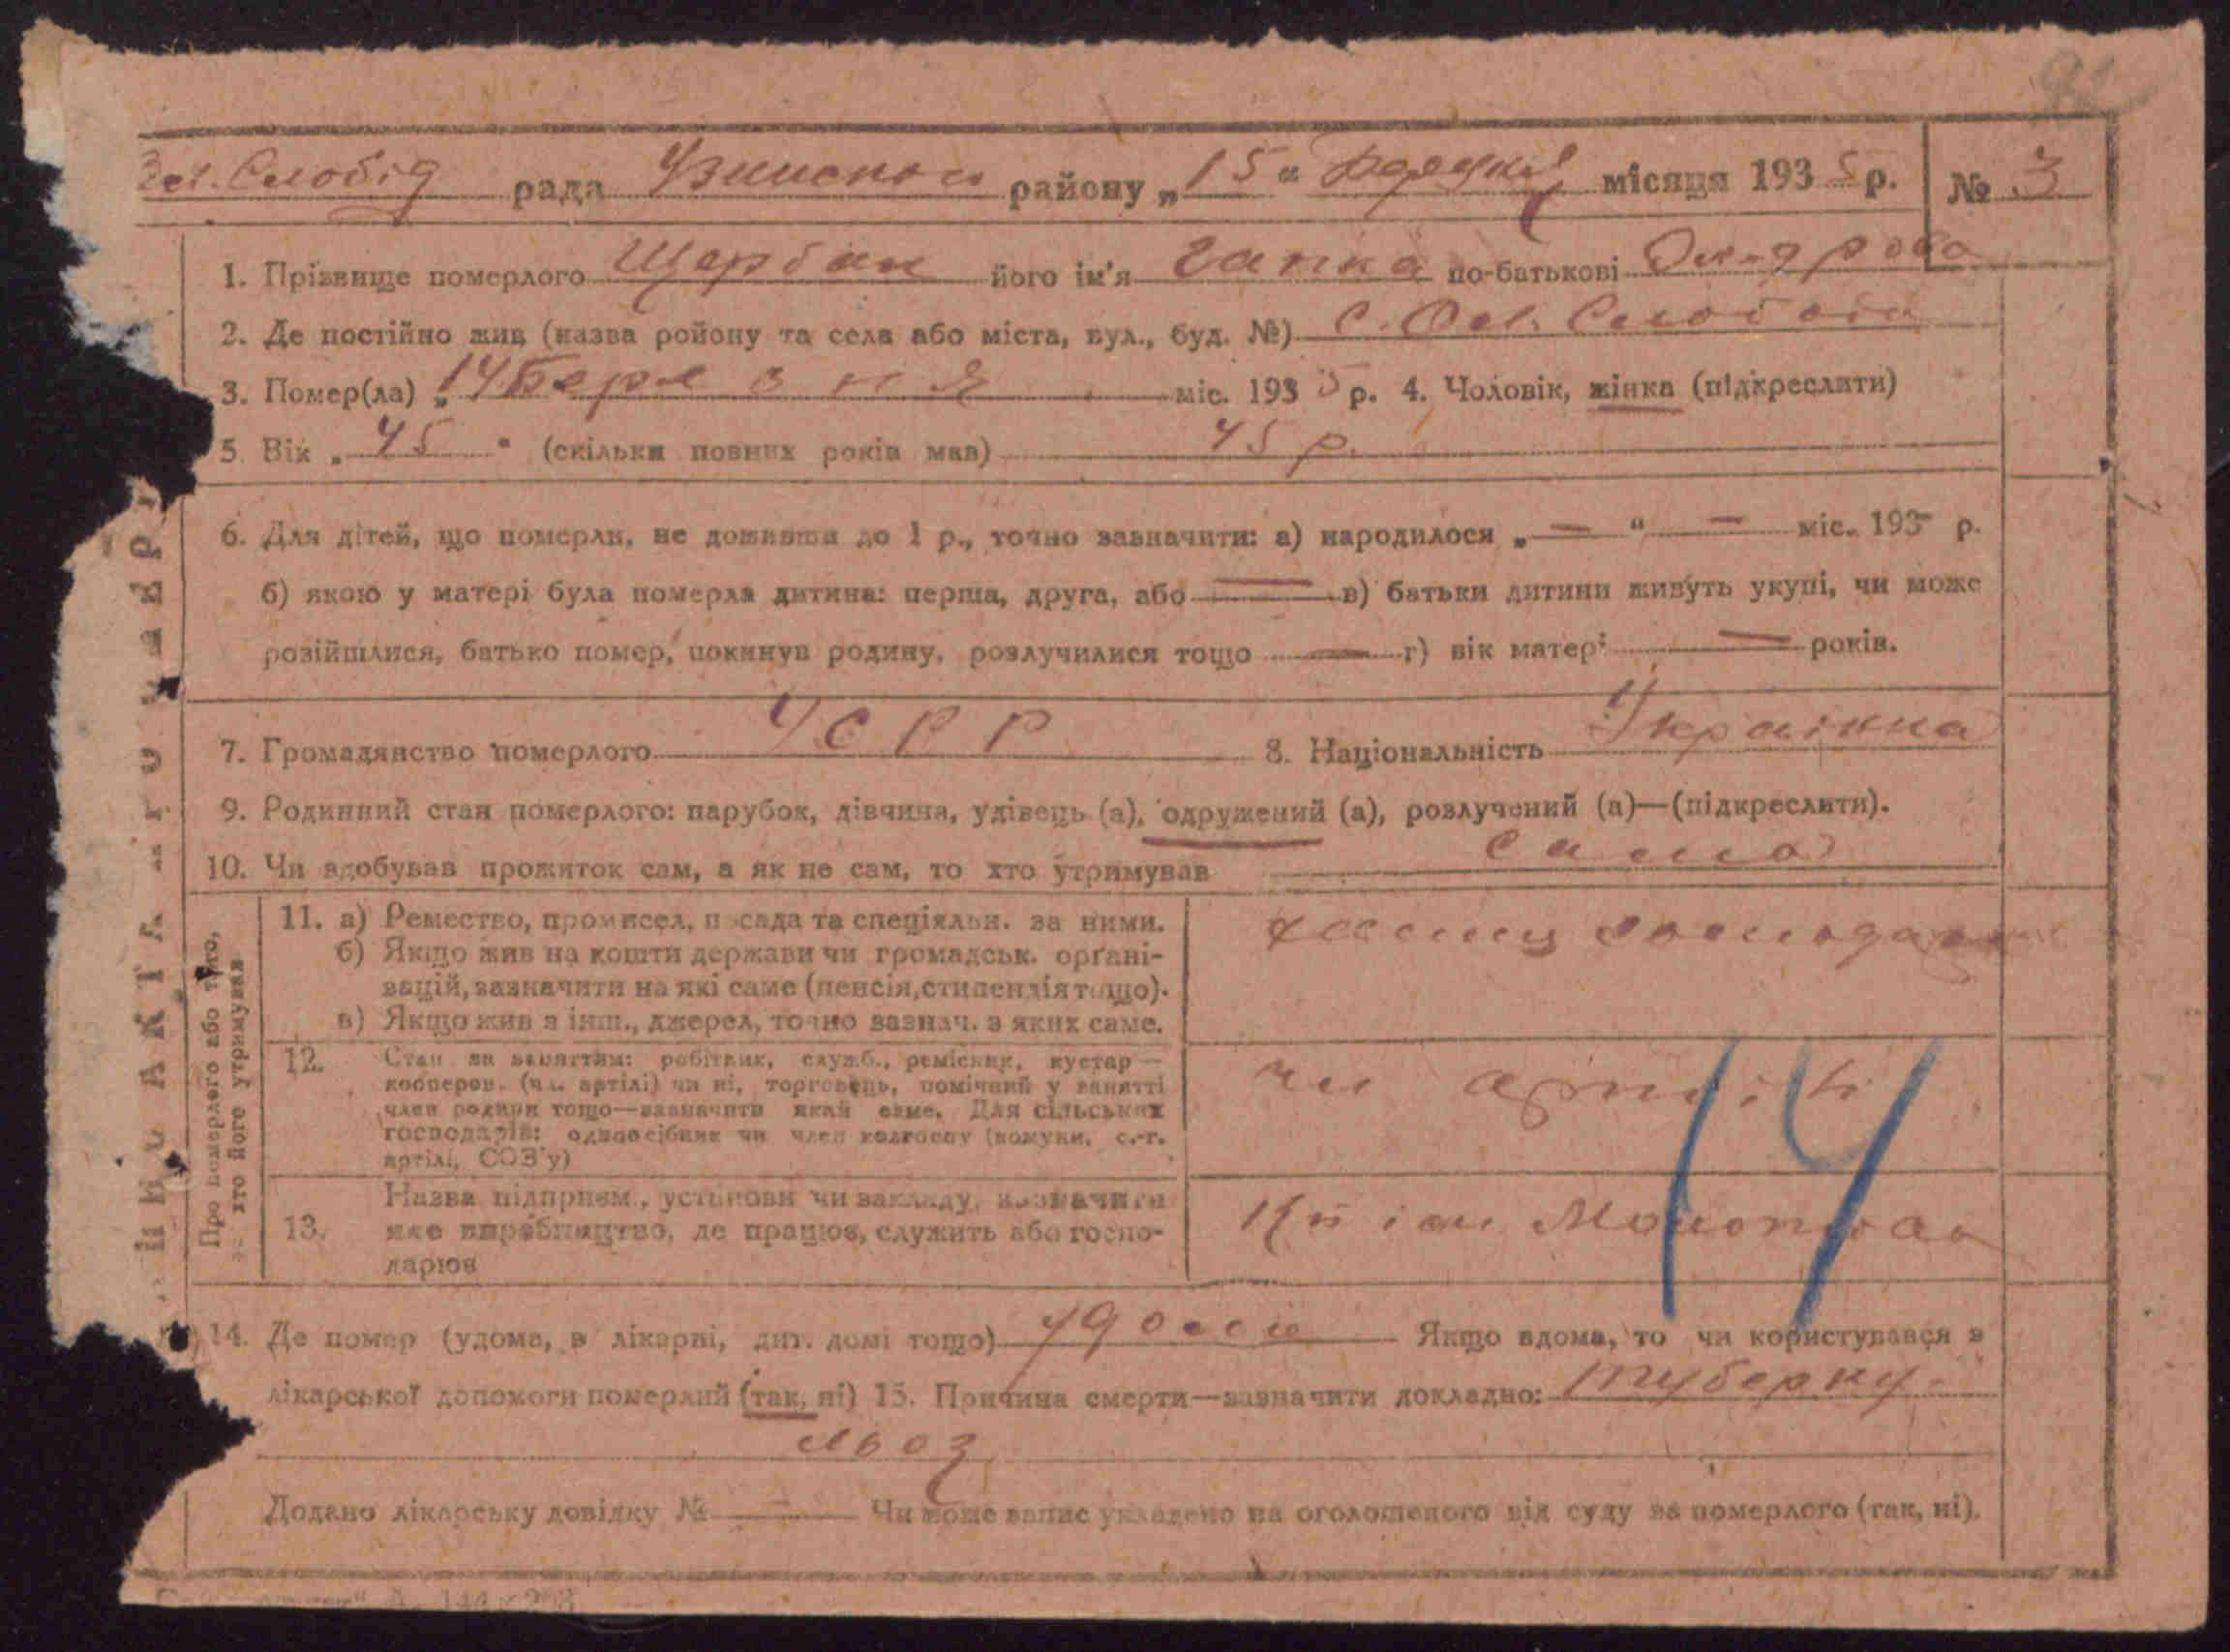 Слобід рада Узинского району „15“ місяця 1935 р. № 3
1. Прізвище померлого Щербак його ім'я Гапка по-батькові
2. Де постійно жив (назва ройону та села або міста, вул., буд. №) с. Слобода
3. Помер(ла) „14 Березня міс. 1935 р. 4. Чоловік, жінка (підкреслити)
5. Вік „45“ (скільки повних років мав) 45 р.
6. Для дітей, що померли, не доживши до 1 р., точно зазначити: а) народилося „—“ — міс. 193 р.
б) якою у матері була померла дитина: перша, друга, або — в) батьки дитини живуть укупі, чи може
розійшлися, батько помер, покинув родину, розлучилися тощо — г) вік матері — років.
7. Громадянство померлого УСРР 8. Національність Українка
9. Родинний стан померлого: парубок, дівчина, удівець (а), одружений (а), розлучений (а)—(підкреслити).
10. Чи здобував прожиток сам, а як не сам, то хто утримував сама
Про померлого або того,
хто його утримував
11. а) Ремество, промисел, посада та спеціяльн. за ними.
б) Якщо жив на кошти держави чи громадськ. орґані-
зацій, зазначити на які саме (пенсія, стипендія тощо).
в) Якщо жив з інш., джерел, точно зазнач. з яких саме.
12. Стан за заняттям: робітник, служб., ремісник, кустар —
кооперов. (чл. артілі) чи ні, торговець, помічний у занятті
член родини тощо—зазначити який саме. Для сільських
господарів: одноосібник чи член колгоспу (комуни, с.-г.
артілі, СОЗ'у)
чл артілі
13. Назва підприєм., установи чи закладу, зазначити
яке виробництво, де працює, служить або госпо-
дарює
14
14. Де помер (удома, в лікарні, дит. домі тощо) удома Якщо вдома, то чи користувався з
лікарської допомоги померлий (так, ні) 15. Причина смерти—зазначити докладно: туберку-
льоз
Додано лікарську довідку № — Чи може запис укладено на оголошеного від суду за померлого (так, ні).